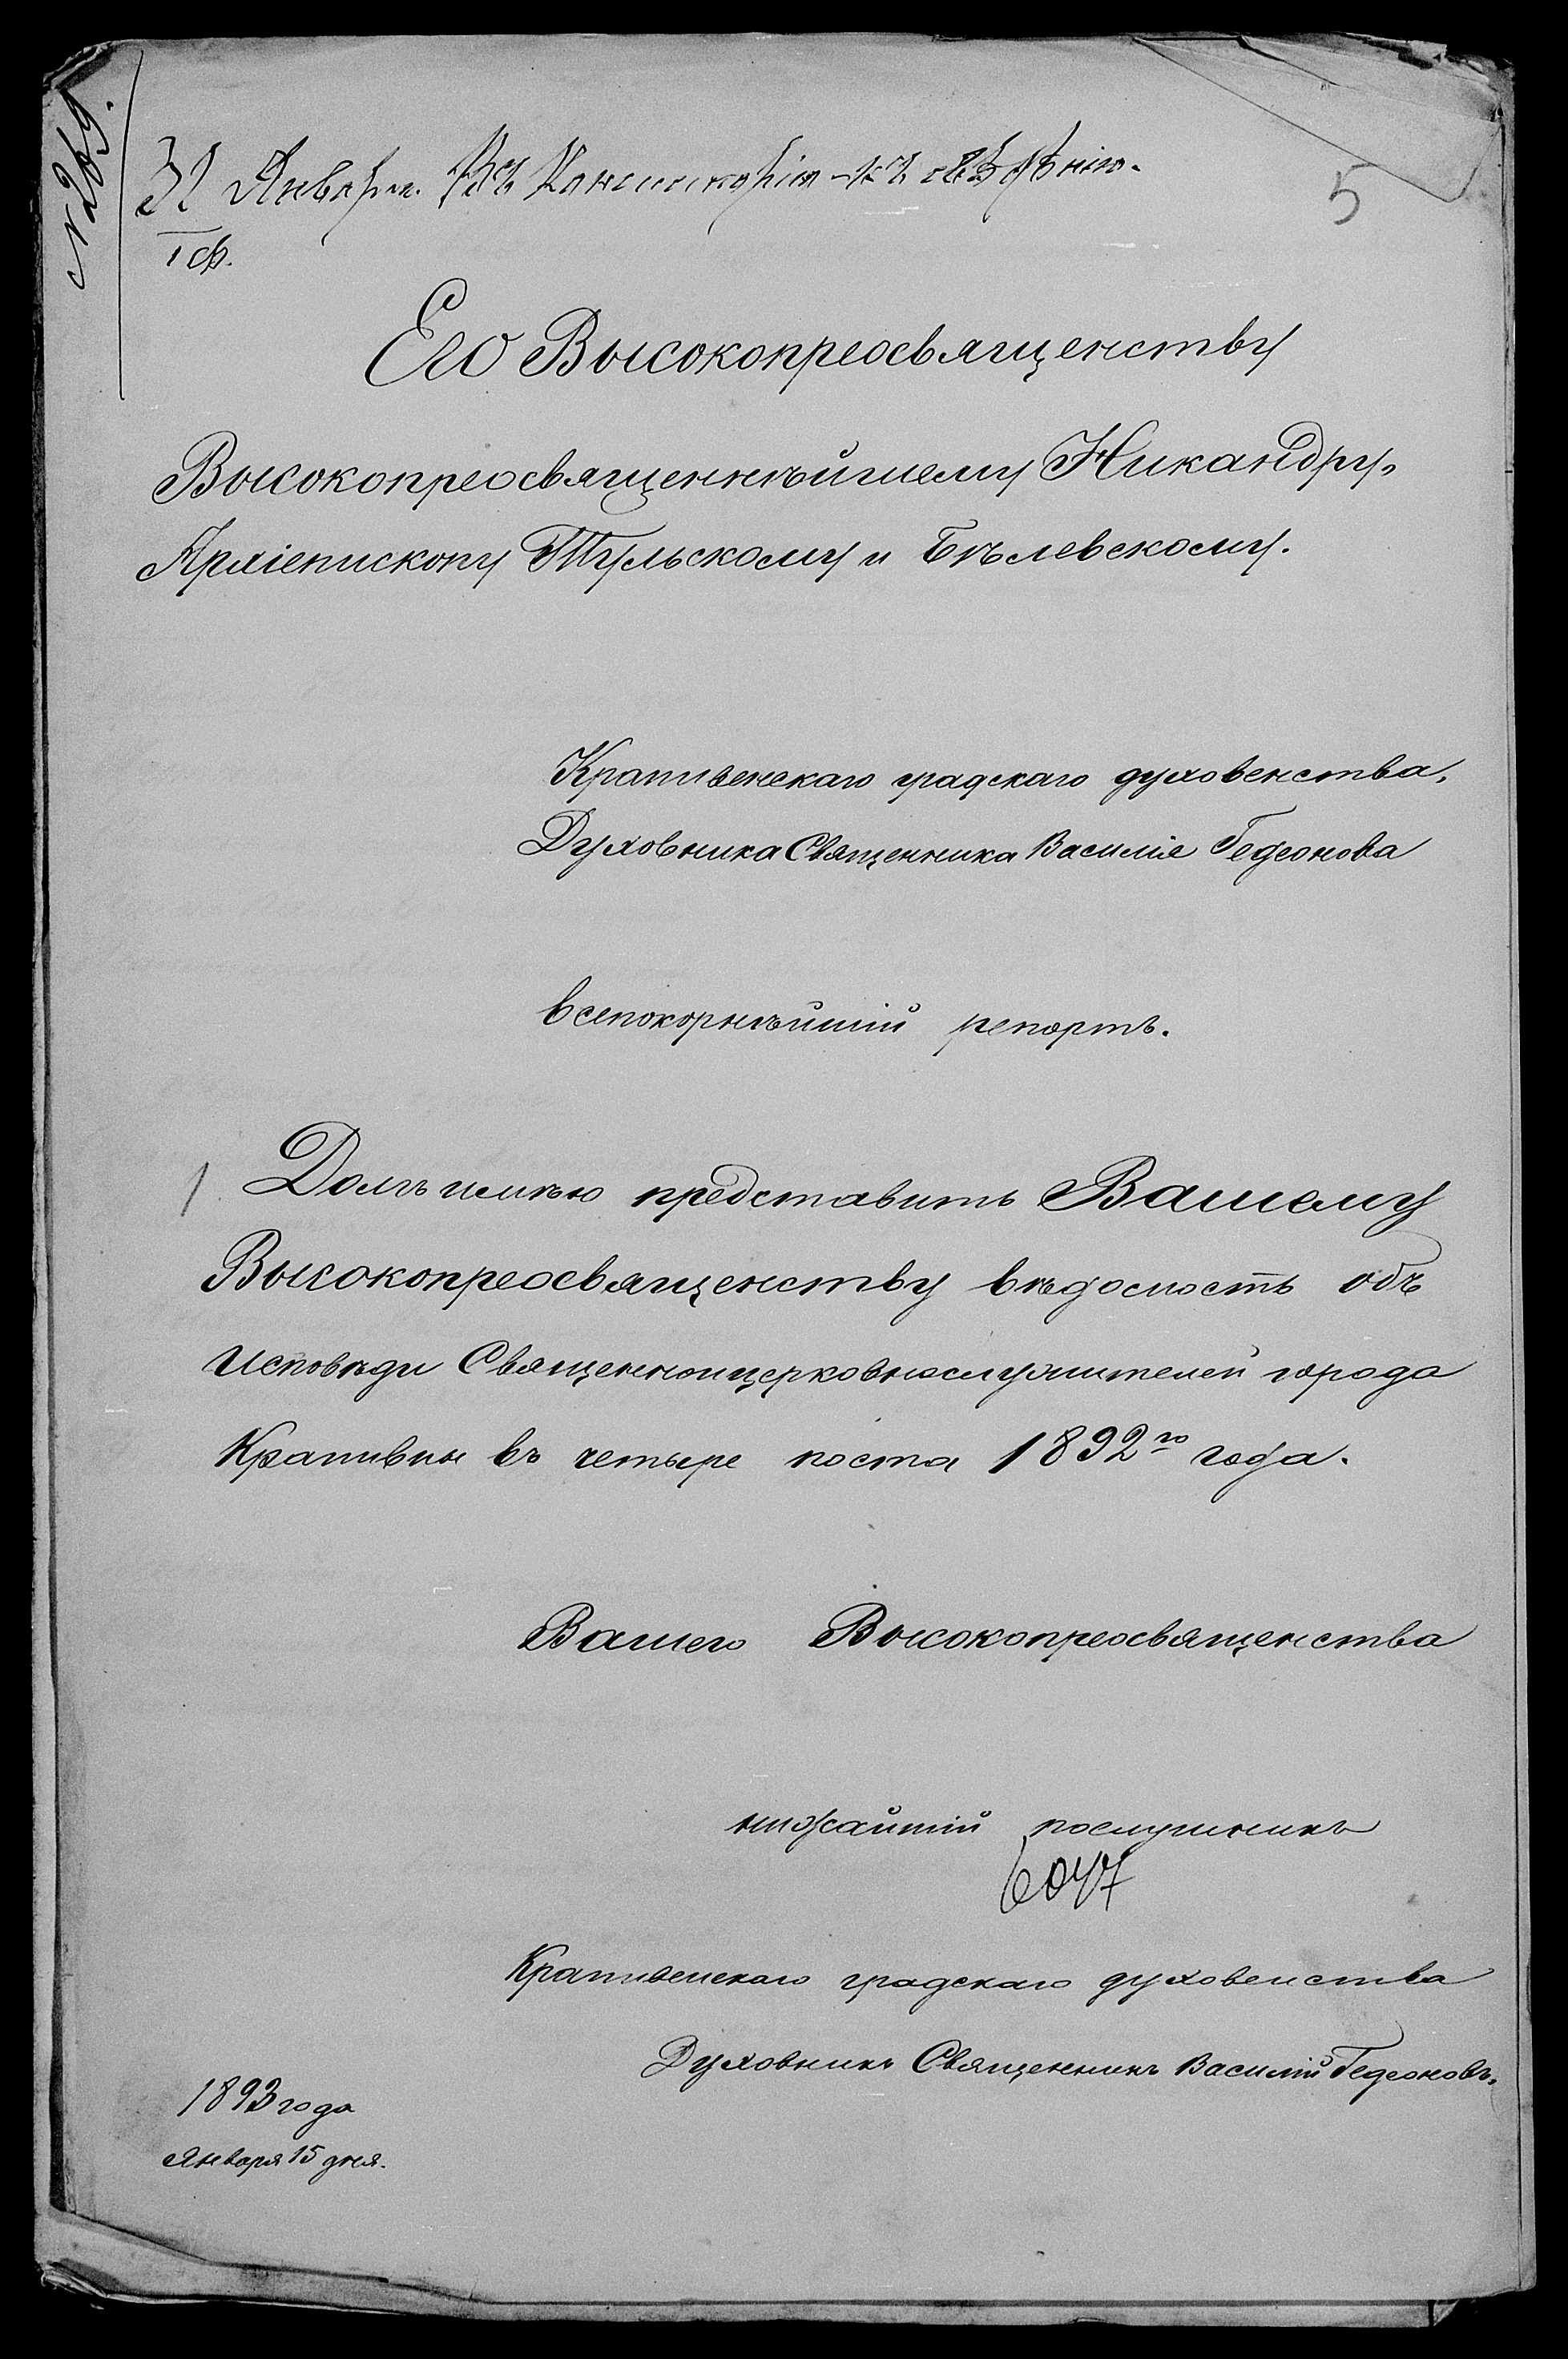 № 269.
31 Января. Въ Консисторію - къ свѣдѣнію.
5
Его Высокопреосвященству
Высокопреосвященнѣйшему Никандру,
Архіепископу Тульскому и Бѣлевскому.
Крапивенскаго градскаго духовенства,
Духовника Священника Василія Гедеонова
всепокорнѣйшій репортъ.
Долгъ имѣю представить Вашему
Высокопреосвященству вѣдомость объ
исповѣди Священноицерковнослужителей города
Крапивны въ четыре поста 1892го года.
Вашего Высокопреосвященства
нижайшій послушникъ
Крапивенскаго градскаго духовенства
Духовникъ Священникъ Василій Гедеоновъ.
1893 года
Января 15 дня.